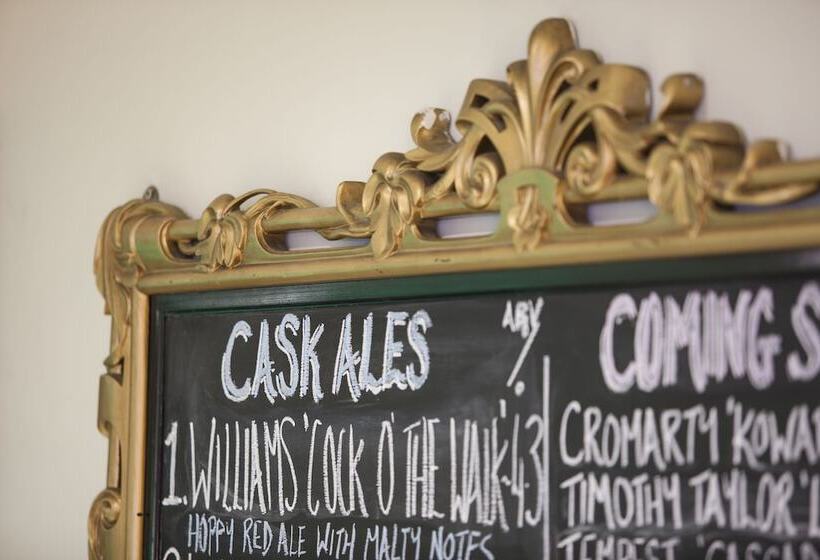 CASK ALES
ABV
1. WILLIAMS 'COCK O' THE WALK' 4.3
HOPPY RED ALE WITH MALTY NOTES
COMING S
CROMARTY 'KOWA
TIMOTHY TAYLOR 'L
TEMPEST